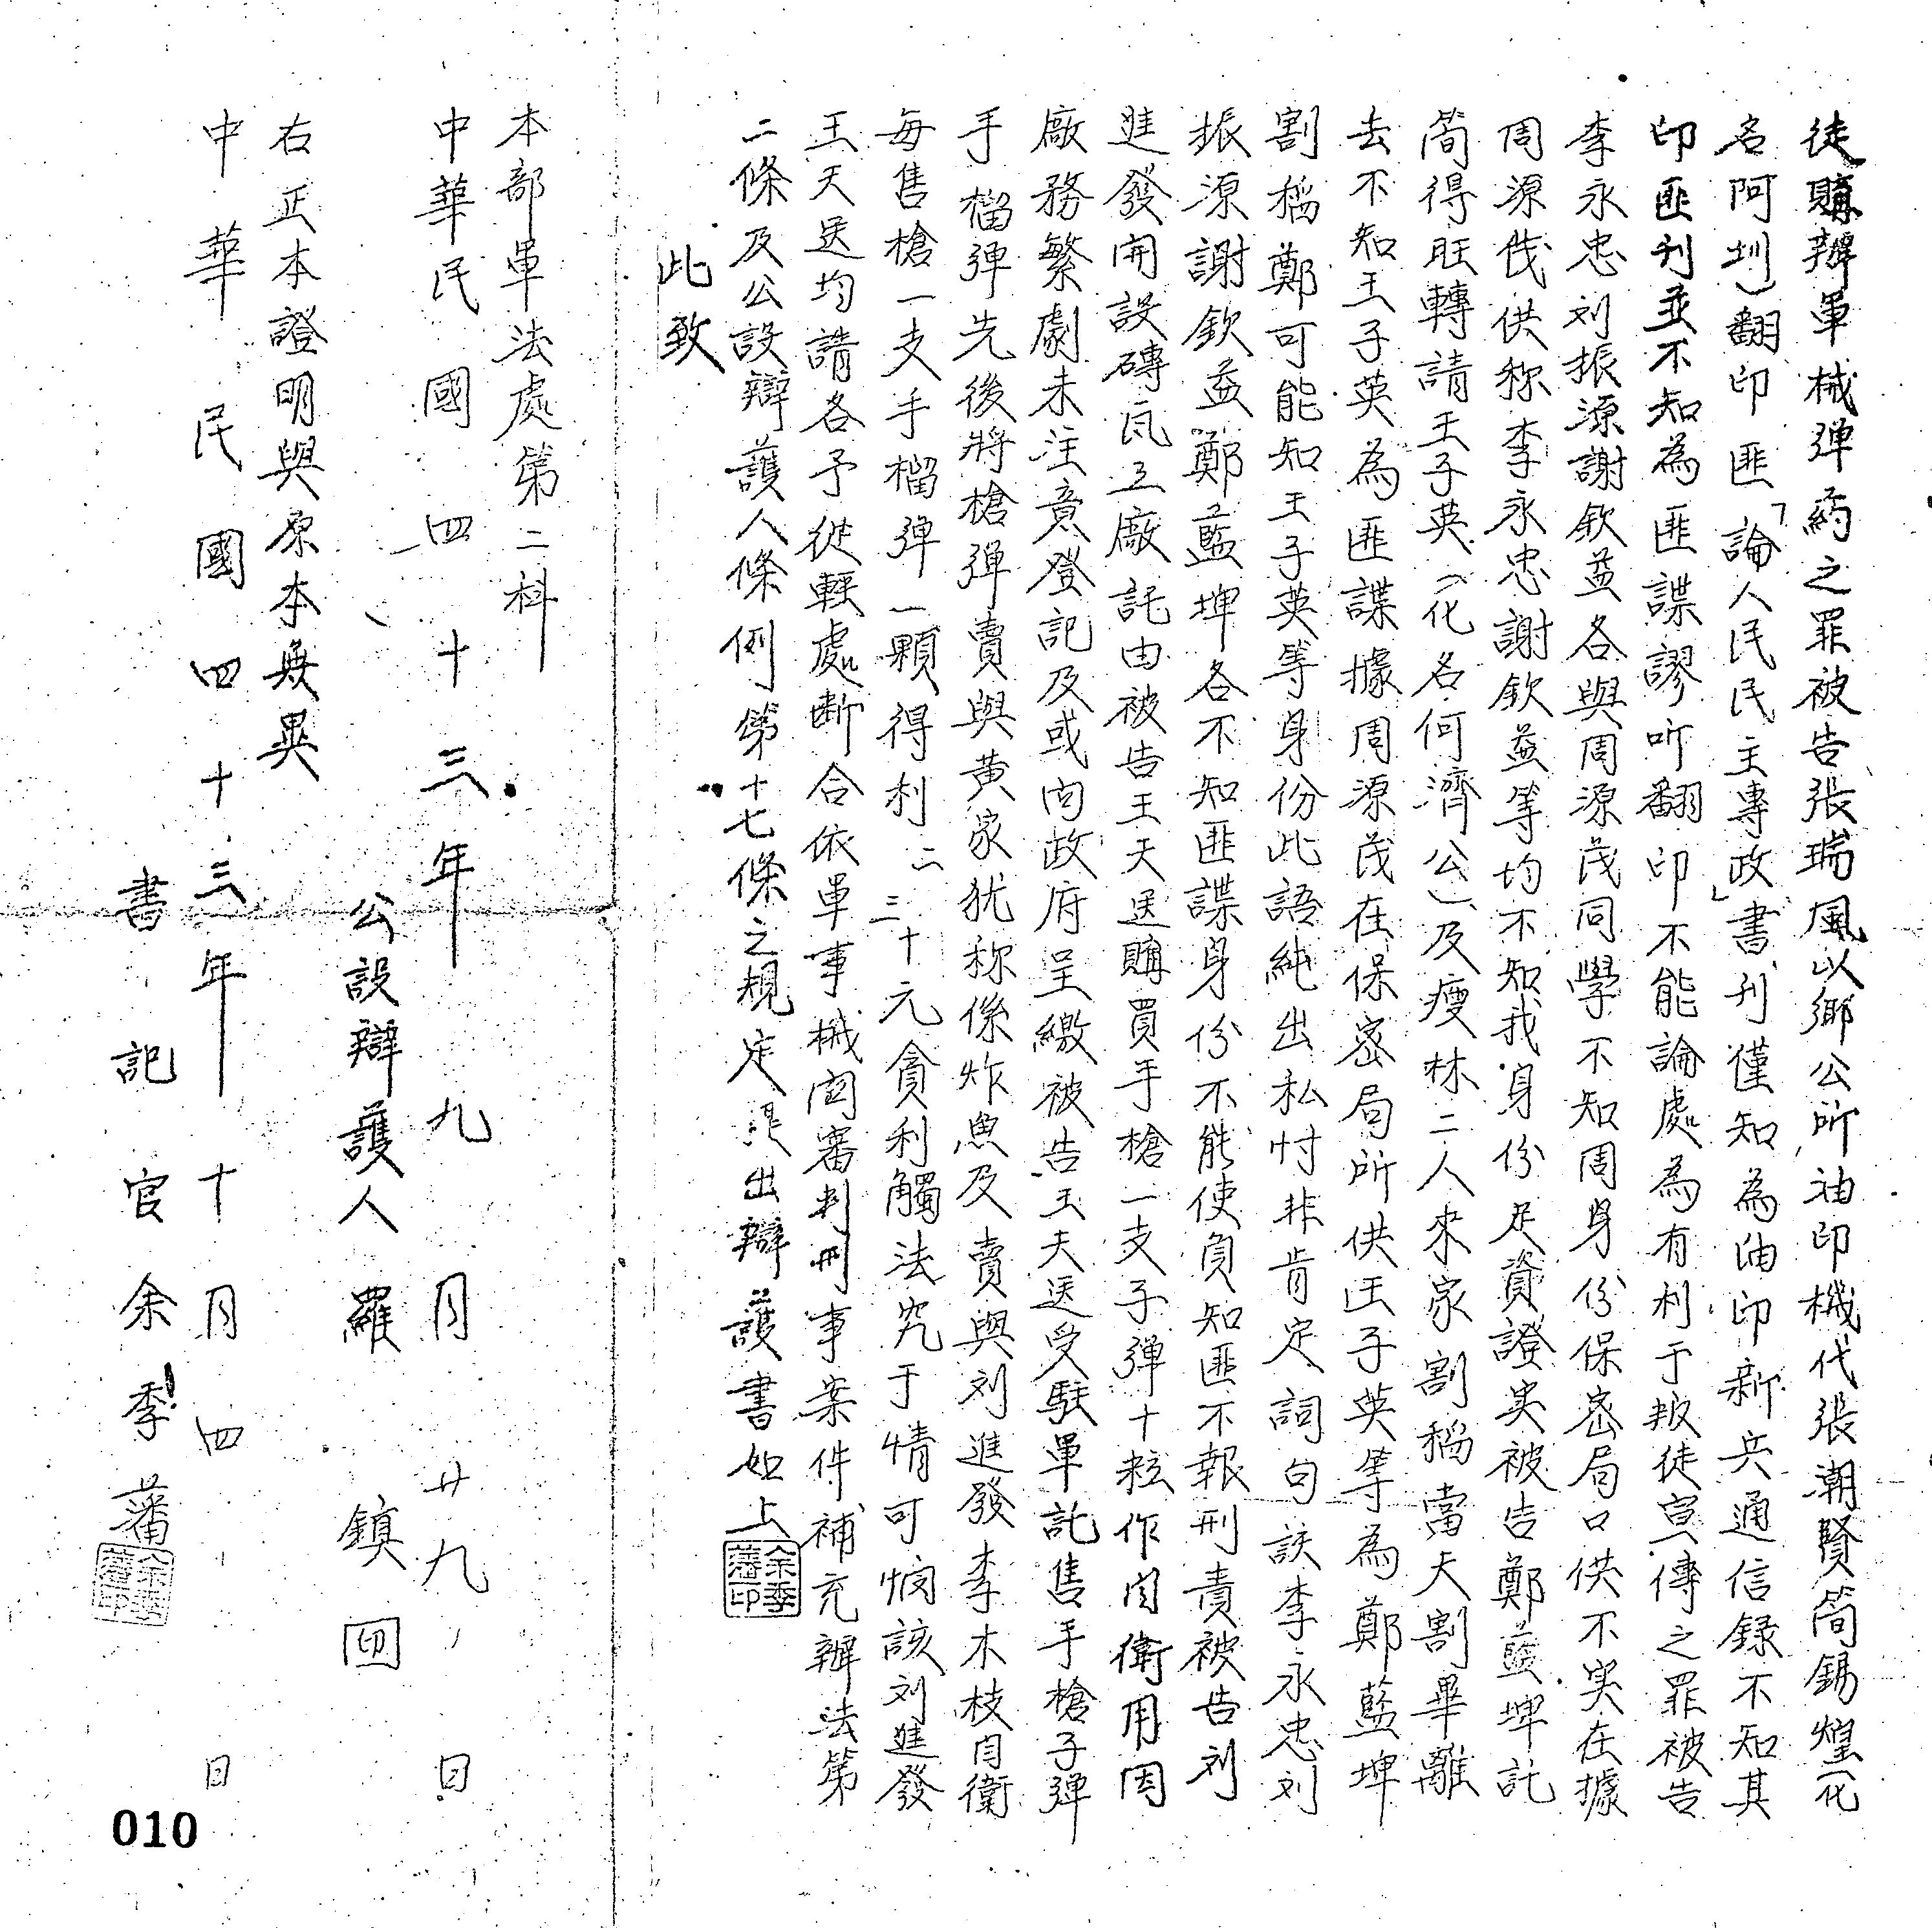 徒購辦軍械弹葯之罪被告張瑞風以鄉公所油印機代張潮賢简錫煌（化
名阿圳）翻印匪「論人民民主專政」書刊僅知為油印新兵通信録不知其
印匪刊並不知為匪諜謬听翻印不能論處為有利于叛徒宣傳之罪被告
李永忠刘振源謝欽益各與周源茂同學不知周身份保密局口供不实在據
周源茂供称李永忠謝欽益等均不知我身份足資證实被告鄭藍埤託
简得旺轉請王子英（化名何濟公）及瘦林二人來家割稻當天割畢離
去不知王子英為匪諜據周源茂在保密局所供王子英等為鄭藍埤
割稻鄭可能知王子英等身份此語純出私忖非肯定詞句該李永忠刘
振源謝欽益鄭藍埤各不知匪諜身份不能使負知匪不報刑責被告刘
進發開設磚瓦工廠託由被告王天送購買手槍一支子弹十粒作自衛用因
廠務繁劇未注意登記及或向政府呈繳被告王天送受駐軍託售手槍子弹
手榴弹先後將槍弹賣與黄家犹称係炸魚及賣與刘進發李木枝自衛
每售槍一支手榴弹一顆得利二三十元貪利觸法究于情可憫該刘進發
王天送均請各予從輕處断合依軍事機関審判刑事案件補充辦法第
二條及公設辯護人條例第十七條之規定提出辯護書如上
此致
本部軍法處第二科
中華民國四十三年九月廿九日
公設辯護人羅鎮 印
右正本證明與原本無異
中華民國四十三年十月四日
書記官余季藩
余季藩印
余季藩印
010